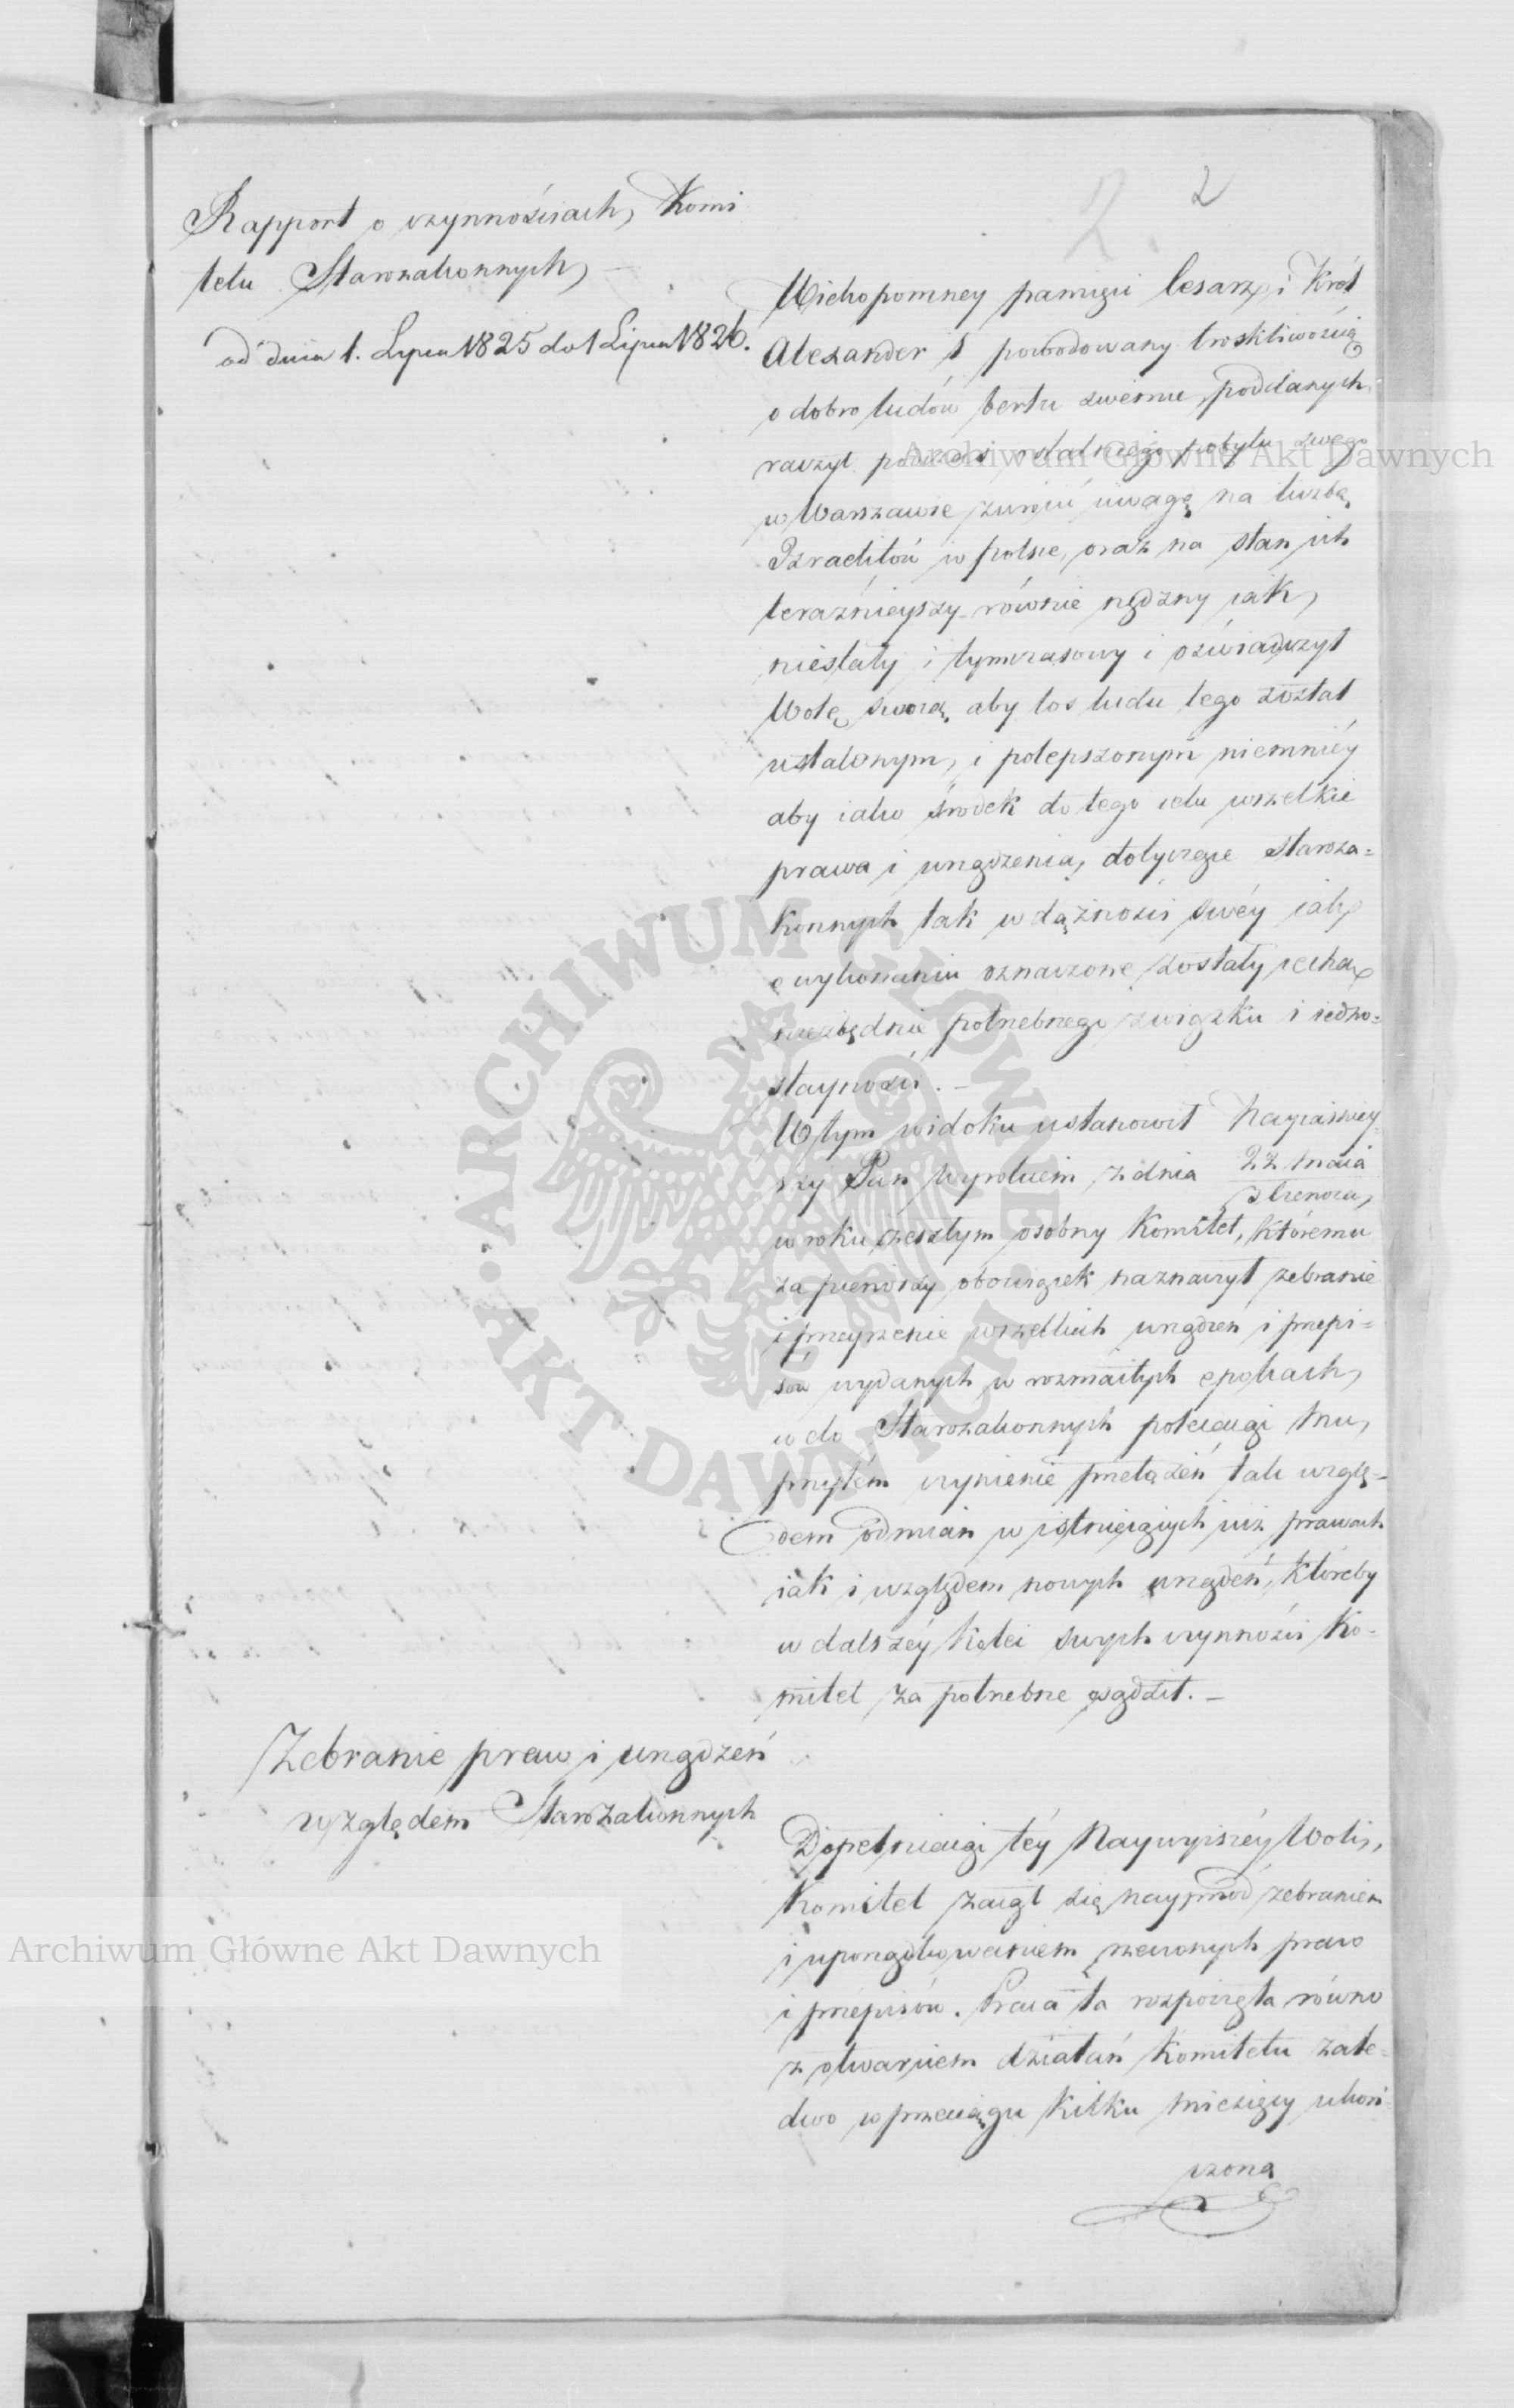 2
2.
Rapport o czynnościach Komi
tetu Starozakonnych
od dnia 1. Lipca 1825 do 1 Lipca 1826.
Wiekopomney pamięci Cesarz i Król
Alexander I powodowany troskliwością
o dobro ludów berłu swemu poddanych
raczył podczas ostatniego pobytu swego
w Warszawie zwrócić uwagę na liczbę
Izraelitów w polsce, oraz na stan ich
teraźnieyszy równie nędzny iak
niestały i tymczasowy i oświadczył
Wolę swoią aby los ludu tego został
ustalonym, i polepszonym niemniéy
aby iako środek do tego celu wszelkie
prawa i urządzenia, dotyczące staroza=
konnych tak w dążności swéy iak
o wykonaniu oznaczone zostały cechą
niezbędnie potrzebnego związku i iedno=
stayności. –
W tym widoku ustanowił Nayiaśniey=
szy Pan wyrokiem z dnia 22 maia
3 Czerwca
w roku zeszłym osobny Komitet, któremu
za pierwszy obowiązek naznaczył zebranie
i przeyrzenie wszelkich urządzeń i przepi=
sów wydanych w rozmaitych epokach,
co do Starozakonnych poleciaiąc Mu,
przytém czynienie przełożeń tak wzglę=
dem odmian w istnieiących iuż prawach
iak i względem nowych urządzeń, któreby
w dalszéy kolei swych czynności Ko=
mitet za potrzebne osądził. –
Zebranie praw i urządzeń
względem Starozakonnych
Dopełniaiąc téy Naywyższéy Woli,
Komitet zaiął się nayprzód zebraniem
i uporządkowaniem rzeczonych praw
i przepisów. Praca ta rozpoczęta równo
z otwarciem działań Komitetu zale=
dwo w przeciągu kilku miesięcy ukoń
czona
Archiwum Główne Akt Dawnych
Archiwum Główne Akt Dawnych
ARCHIWUM GŁÓWNE AKT DAWNYCH